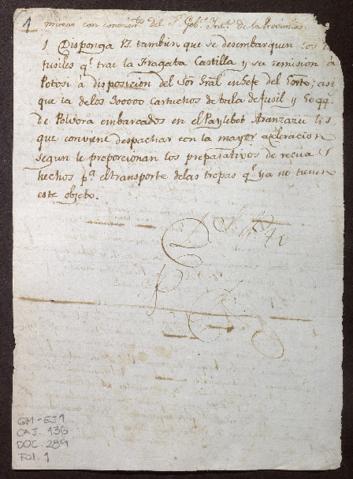 1 mirese con conocim.to del S.r Gob.r Int.te de la Provincia.
1 Disponga V. tambien que se desembarquen los
fusiles q.e trae la Fragata Castilla y su remision à
Potosi à disposicion del Sor Gral en Xefe del Exto; asi
que la de los 300000 cartuchos de bala de fusil y 50 qq.
de Polvora embarcados en el Paylebot Aranzazu los
que conviene despachar con la mayor aceleracion
segun le proporcionan los preparativos de recua
hechos p.a el transporte de las tropas q.e ya no tienen
este objeto.
GM-EJ1
CAJ. 136
DOC. 289
FOL. 1